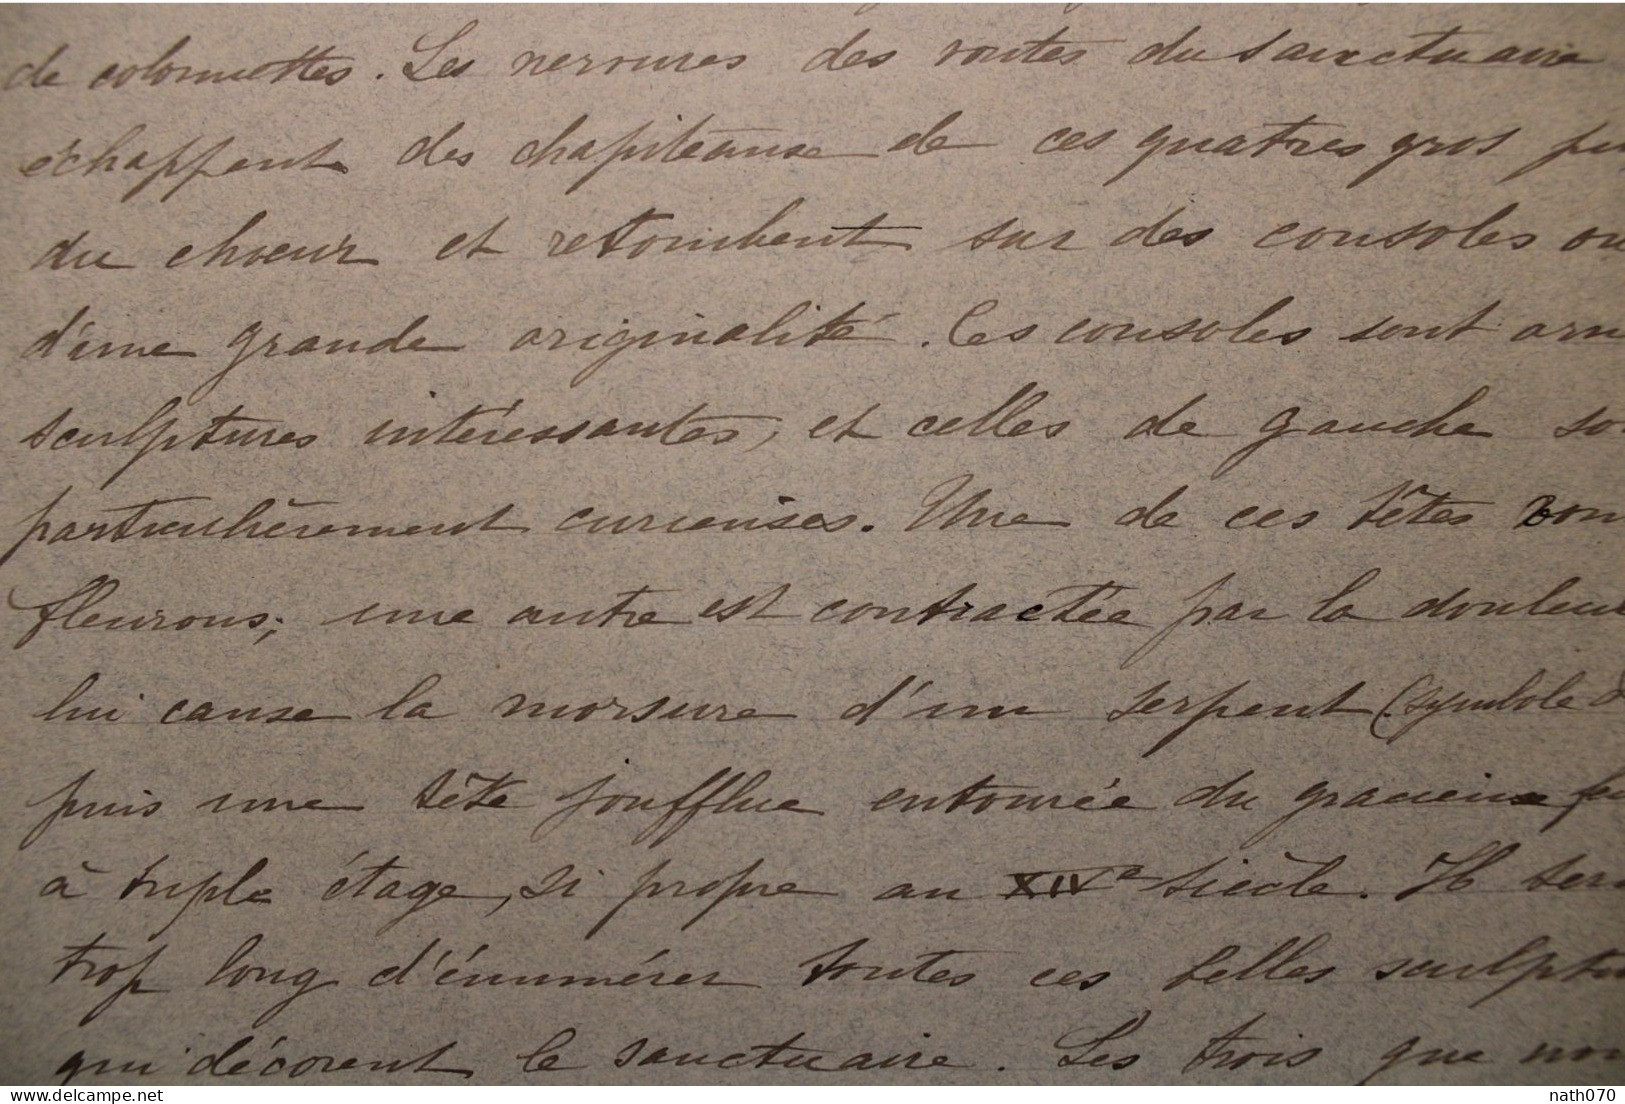 de colonnettes. Les nervures des voutes du sanctuaire
échappent des chapiteaux de ces quatres gros
du choeur et retombent sur des consoles
d'une grande originalité. Ces consoles sont
sculptures intéressantes, et celles de gauche
particulièrement curieuses. Une de ces têtes
fleurons; une autre est contractée par la douleur
lui cause la morsure d'un serpent (symbole
puis une tête joufflue entourée du gracieux
à triple étage, si propre au XIVe siècle. Il
trop long d'énumérer toutes ces belles
qui décorent le sanctuaire. Les trois que
delcampe.net
nath070